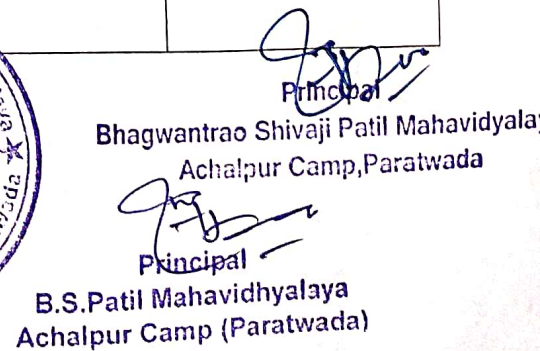 Principal
Bhagwantrao Shivaji Patil Mahavidyalay
Achalpur Camp,Paratwada
Principal
B.S.Patil Mahavidhyalaya
Achalpur Camp (Paratwada)